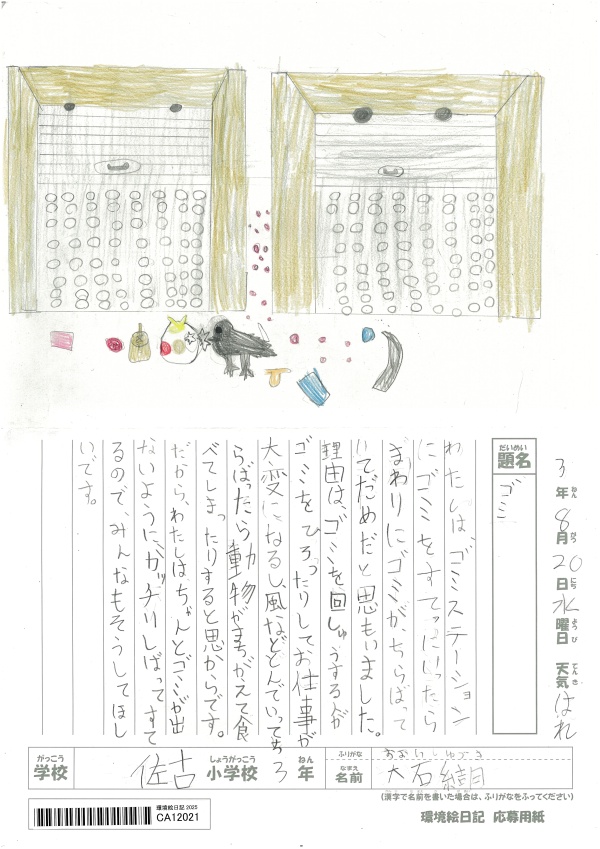 3年8月20日水曜日 天気 はれ
ねん がつ にち ようび てんき
だいめい
題名
ゴミ
わたしは、ゴミステーション
にゴミをすてっにいったら
まわりにゴミがちらばって
いてだめだと思もいました。
理由は、ゴミを回しゅうする人が
ゴミをひろったりしてお仕事が
大変になるし、風などとんでいってち
らばったら動物がまちがえて食
べてしまったりすると思からです。
だから、わたしはちゃんとゴミが出
ないようにガッチリしばってすて
るので、みんなもそうしてほし
いです。
がっこう しょうがっこう ねん ふりがな おおいしゆづき
学校 佐古 小学校 3年 なまえ 名前 大石結月
(漢字で名前を書いた場合は、ふりがなをふってください)
環境絵日記 2025
CA12021
環境絵日記 応募用紙